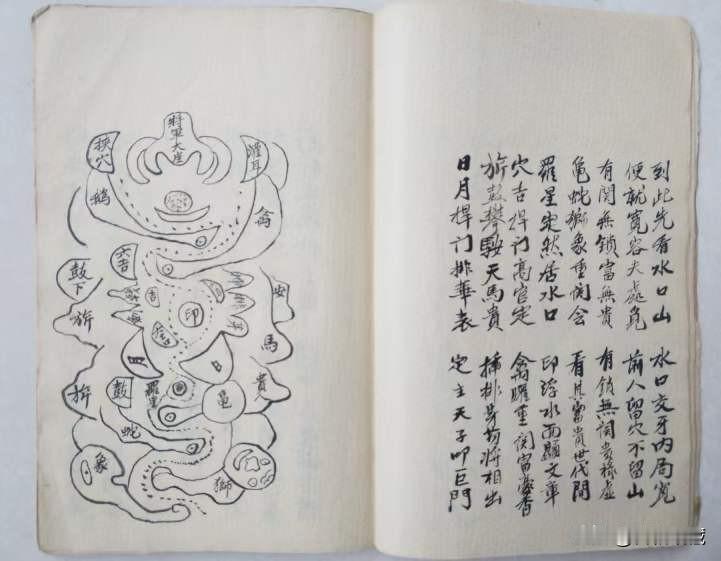 到此先看水口山 水口交牙內局寬
便就寬容大處覓 前人留穴不留山
有関無鎖富無貴 有鎖無関貴祿虛
亀蛇獅象重関会 看其富貴世代聞
羅星定然居水口 印浮水面顯文章
穴吉捍门高官定 禽曜重関富豪香
旂鼓攀鞍天馬貴 排 將相出
日月捍门排華表 定主天子叩巨門
將軍大座
挾穴
耳
鵝
禽
六吉
鼓下
旂
吉
印
安
馬
貴
月
日
旂
鼓
羅星
亀
蛇
象
獅